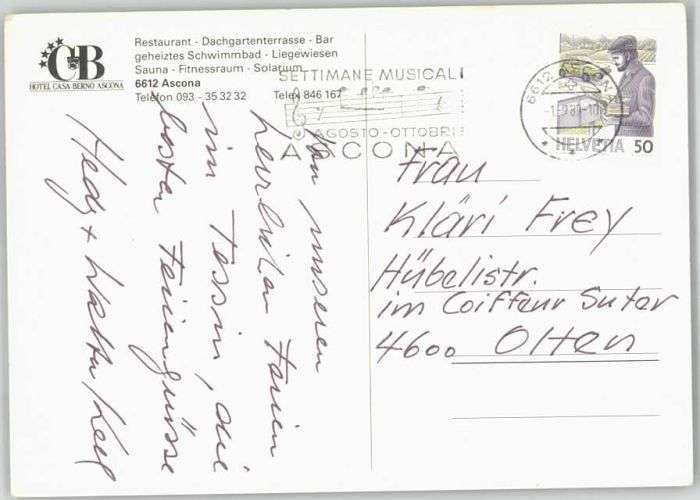 CB
HOTEL CASA BERNO ASCONA
Restaurant - Dachgartenterrasse - Bar
geheiztes Schwimmbad - Liegewiesen
Sauna - Fitnessraum - Solarium
6612 Ascona
Telefon 093 - 35 32 32 Telex 846 167
SETTIMANE MUSICALI
AGOSTO-OTTOBRE
ASCONA
6612
HELVETIA 50
Von unseren
herrlichen Ferien
im Tessin, die
besten Feriengrüsse
Hedy +
Frau
Kläri Frey
Hübelistr.
im Coiffeur Suter
4600 Olten